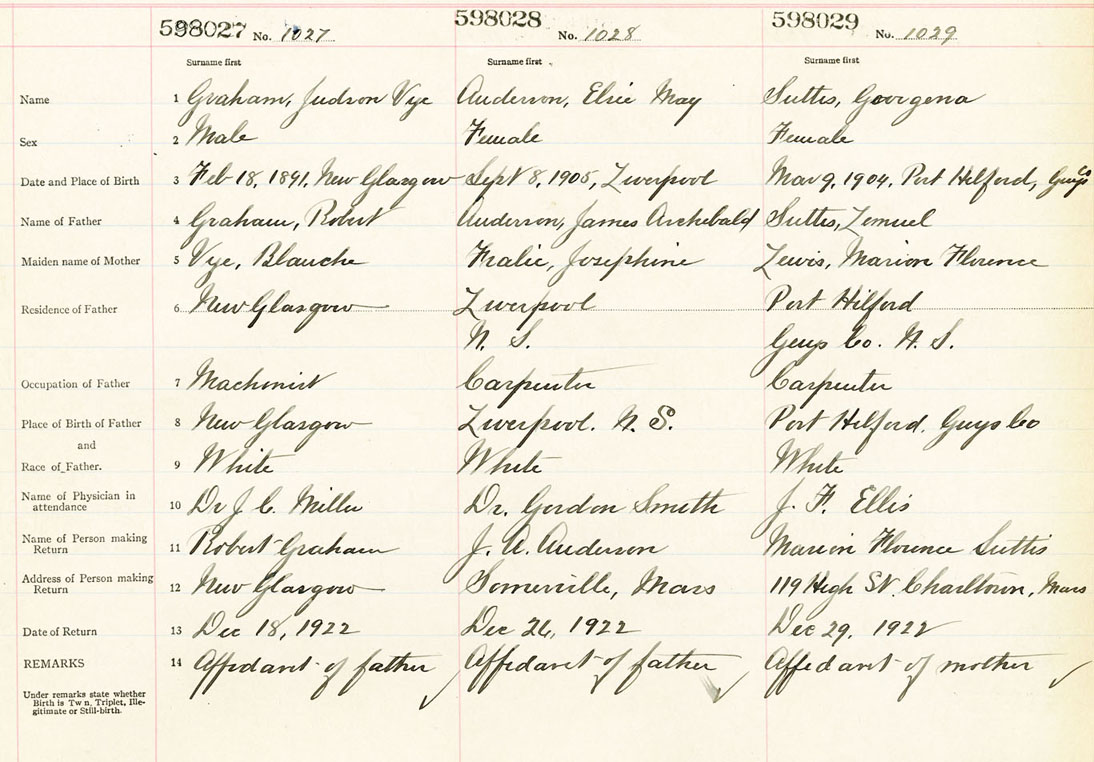 598027 No. 1027 598028 No. 1028 598029 No. 1029
Surname first Surname first Surname first
Name 1 Graham, Judson Vye Anderson, Elsie May Suttis, Georgena
Sex 2 Male Female Female
Date and Place of Birth 3 Feb 18, 1891, New Glasgow Sept 8, 1905, Liverpool Mar 9, 1904, Port Hilford, Guys Co
Name of Father 4 Graham, Robert Anderson, James Archebald Suttis, Lemuel
Maiden name of Mother 5 Vye, Blanche Fralic, Josephine Lewis, Marion Florence
Residence of Father 6 New Glasgow Liverpool Port Hilford
N. S. Guys Co. N. S.
Occupation of Father 7 Machinist Carpenter Carpenter
Place of Birth of Father 8 New Glasgow Liverpool. N. S. Port Hilford, Guys Co
and
Race of Father. 9 White White White
Name of Physician in
attendance 10 Dr J. C. Miller Dr. Gordon Smith J. F. Ellis
Name of Person making
Return 11 Robert Graham J. A. Anderson Marion Florence Suttis
Address of Person making
Return 12 New Glasgow Somerville, Mass 119 High St. Charltown, Mass
Date of Return 13 Dec 18, 1922 Dec 26, 1922 Dec 29, 1922
REMARKS 14 Affidavit of father Affidavit of father Affidavit of mother
Under remarks state whether
Birth is Tw n, Triplet, Ille-
gitimate or Still-birth.